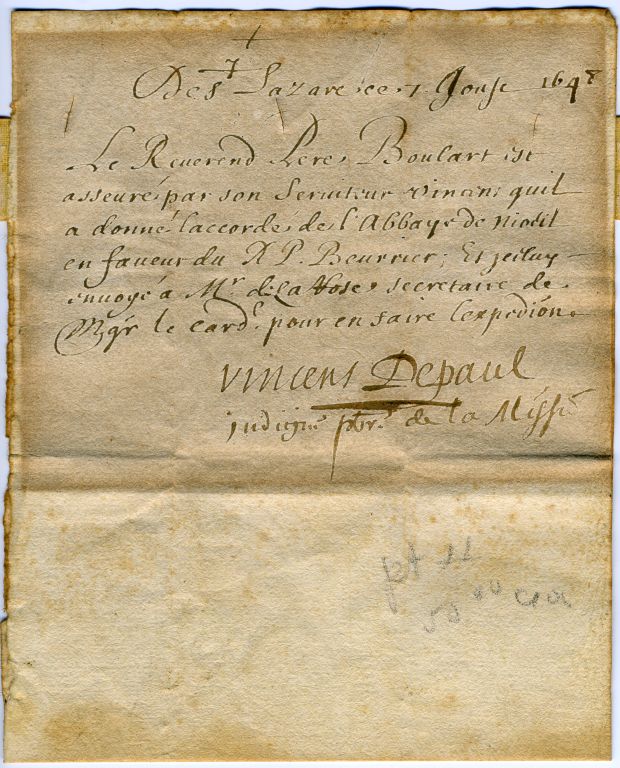 De St Lazare ce 7 Gouse 1648
Le Reverend Pere Boulart est
asseuré par son serviteur vincent quil
a donné l'accordé de l'Abbaye de nioeil
en faveur du R P. Beurrier, Et
envoyé a Mr de la secretaire de
Mgr le card.l pour en faire l'expedion.
Vincent Depaul
indigne ptre de la Missn
pt